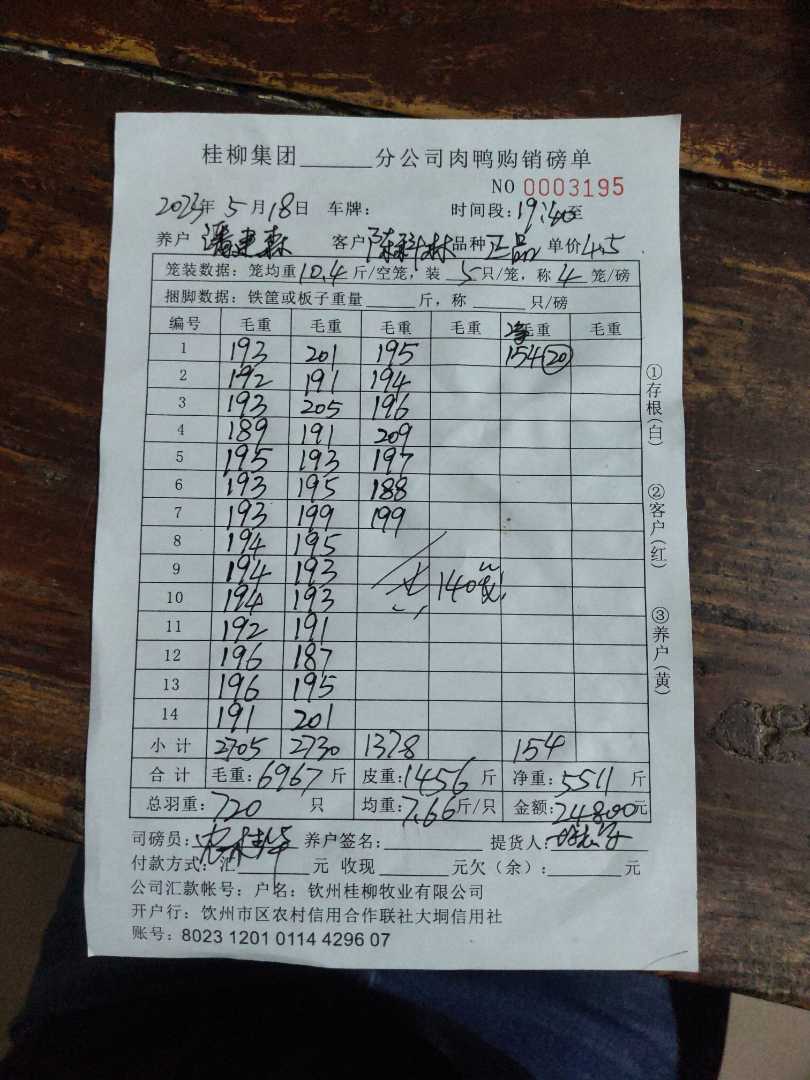 桂柳集团______分公司肉鸭购销磅单
NO 0003195
2023年 5月18日 车牌: 时间段:19:40至
养户 潘建森 客户 陈科林 品种 正品 单价4.5
笼装数据: 笼均重10.4斤/空笼, 装 5只/笼, 称 4 笼/磅
捆脚数据: 铁筐或板子重量______斤, 称______只/磅
编号 毛重 毛重 毛重 毛重 净重 毛重
1 193 201 195 154 20
2 192 191 194
3 193 205 196
4 189 191 209
5 195 193 197
6 193 195 188
7 193 199 199
8 194 195
9 194 193 140
10 194 193
11 192 191
12 196 187
13 196 195
14 191 201
小计 2705 2730 1378 154
合计 毛重:6967斤 皮重:1456斤 净重:5511斤
总羽重: 720 只 均重:7.66斤/只 金额:24800元
司磅员: 养户签名:______ 提货人:
付款方式: 汇______元 收现______元欠(余):______元
公司汇款帐号: 户名: 钦州桂柳牧业有限公司
开户行: 饮州市区农村信用合作联社大垌信用社
账号: 8023 1201 0114 4296 07
①存根(白)
②客户(红)
③养户(黄)